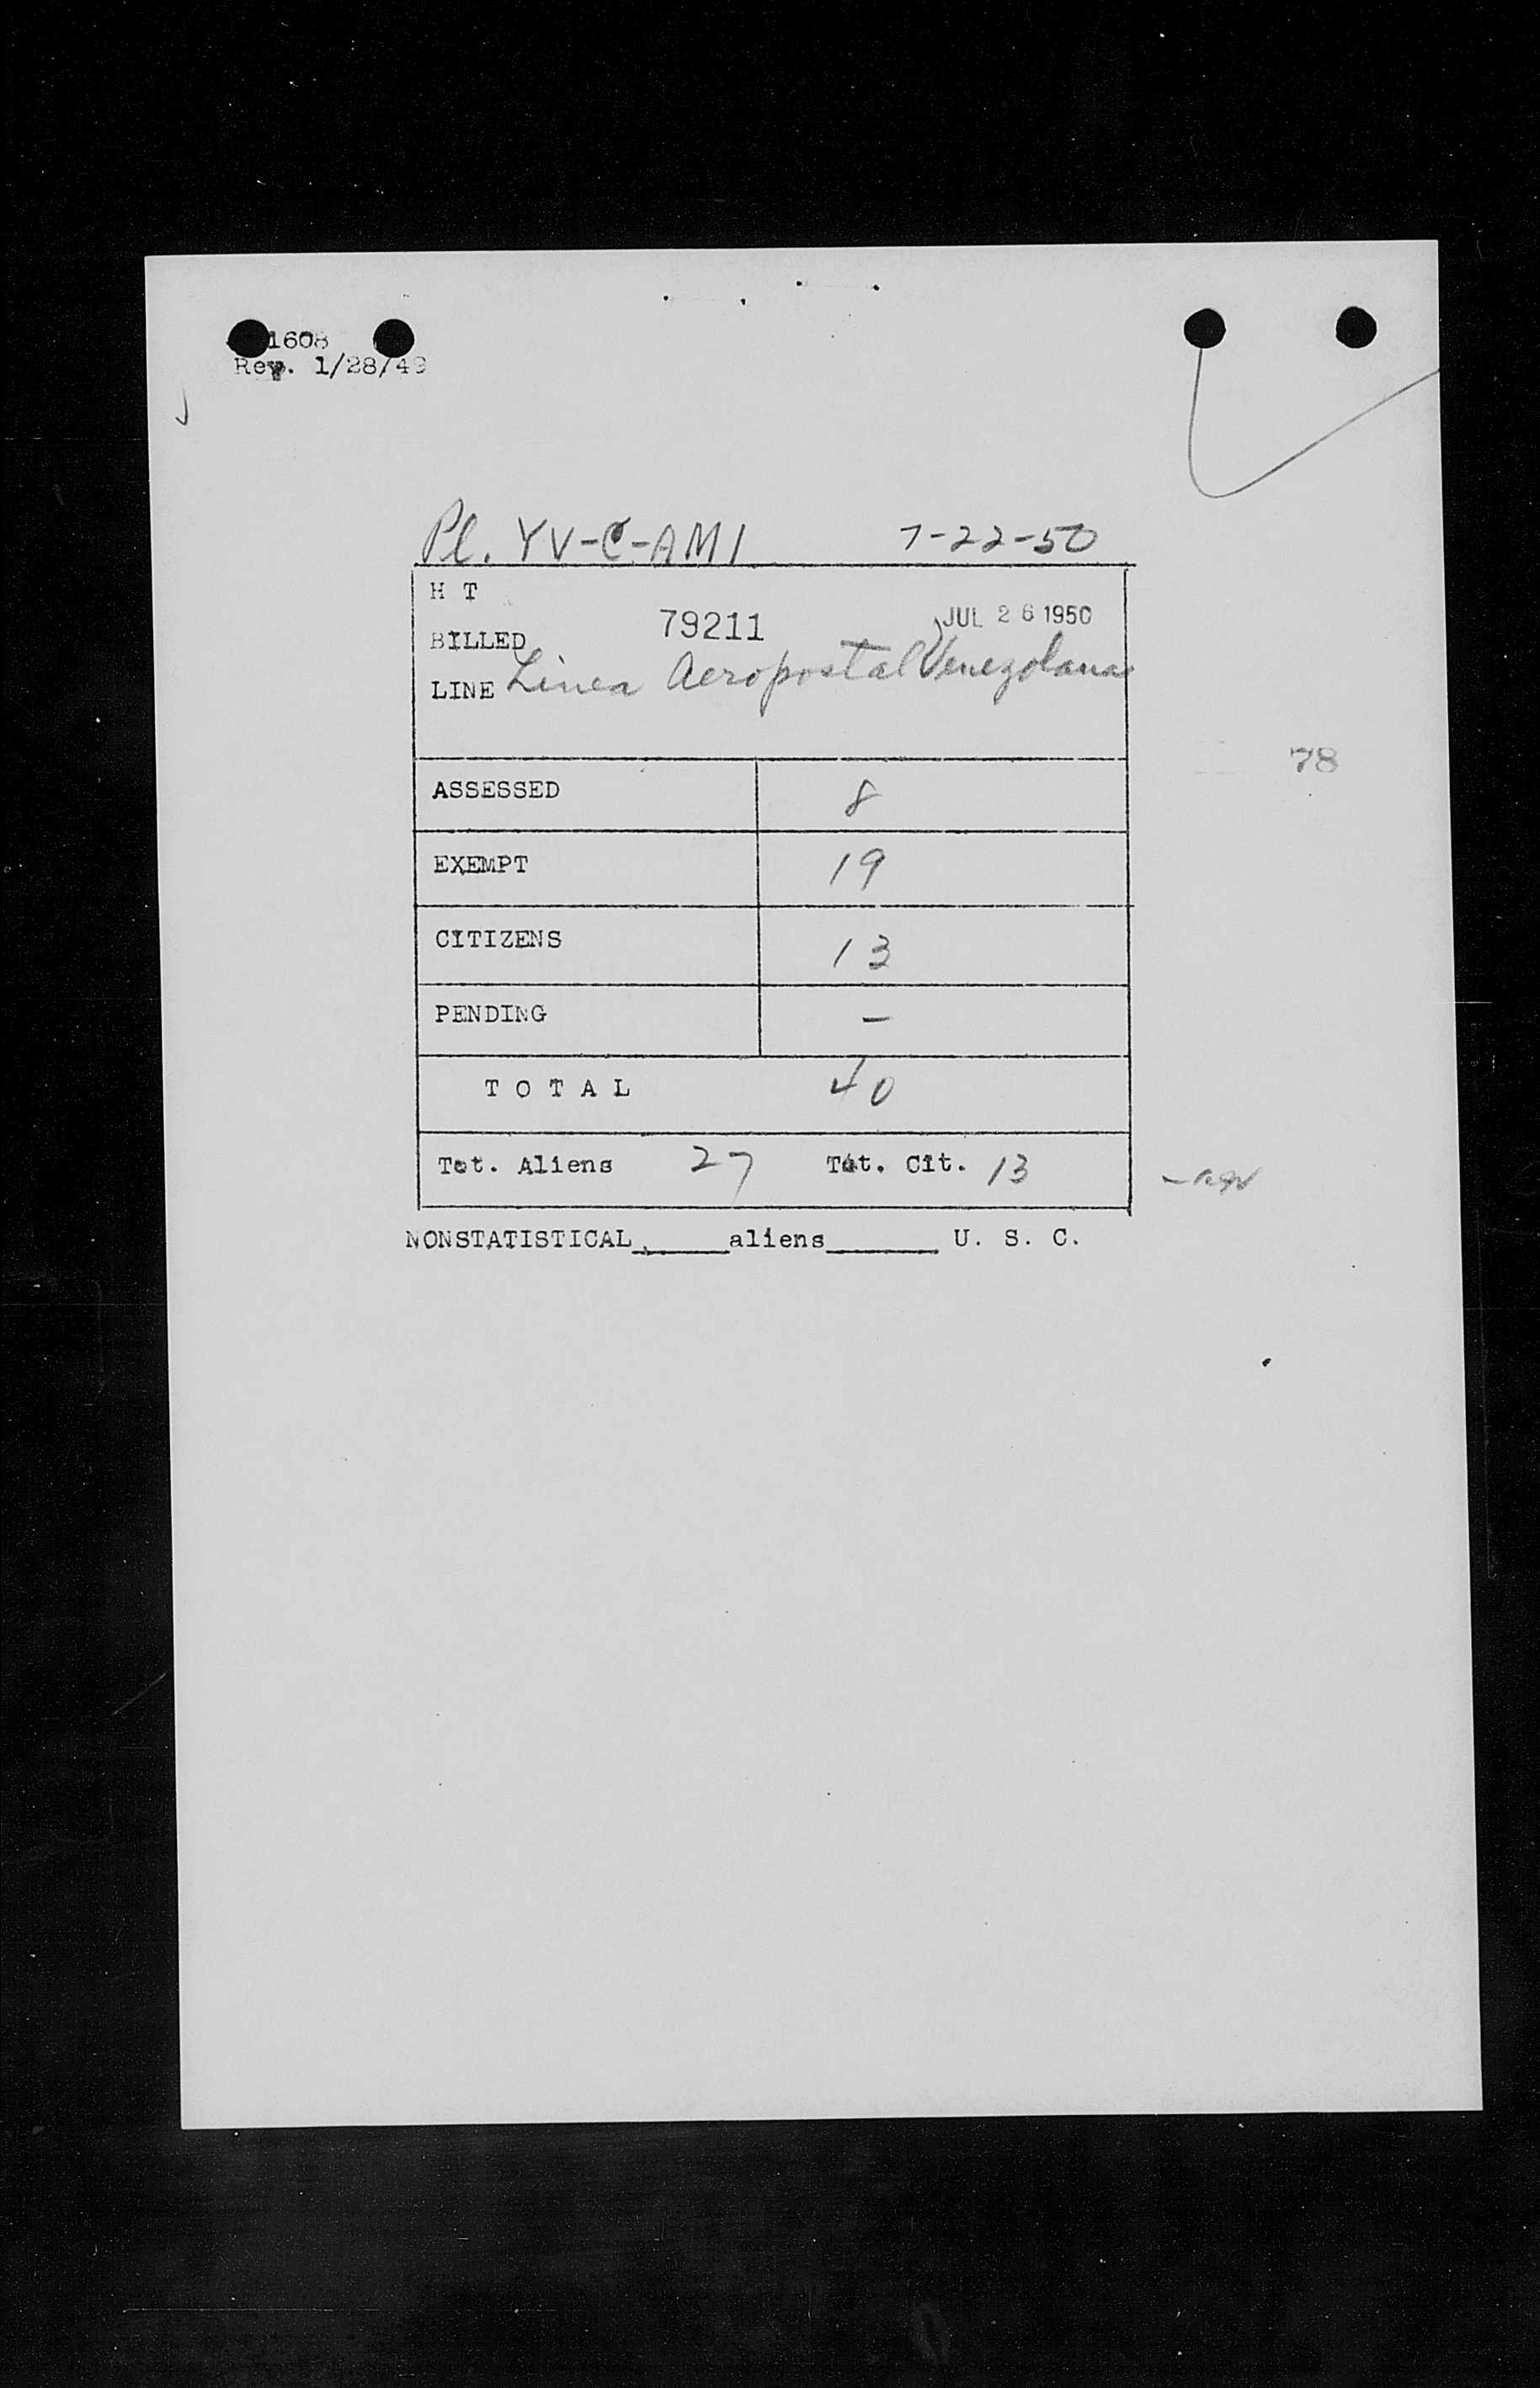 1608
Rev. 1/28/49
Pl. YV-C-AMI 7-22-50
H T
BILLED 79211 JUL 26 1950
LINE Linea Aeropostal Venezolana
78
ASSESSED 8
EXEMPT 19
CITIZENS 13
PENDING -
T O T A L 40
Tot. Aliens 27 Tot. Cit. 13
NONSTATISTICAL_____aliens______ U. S. C.